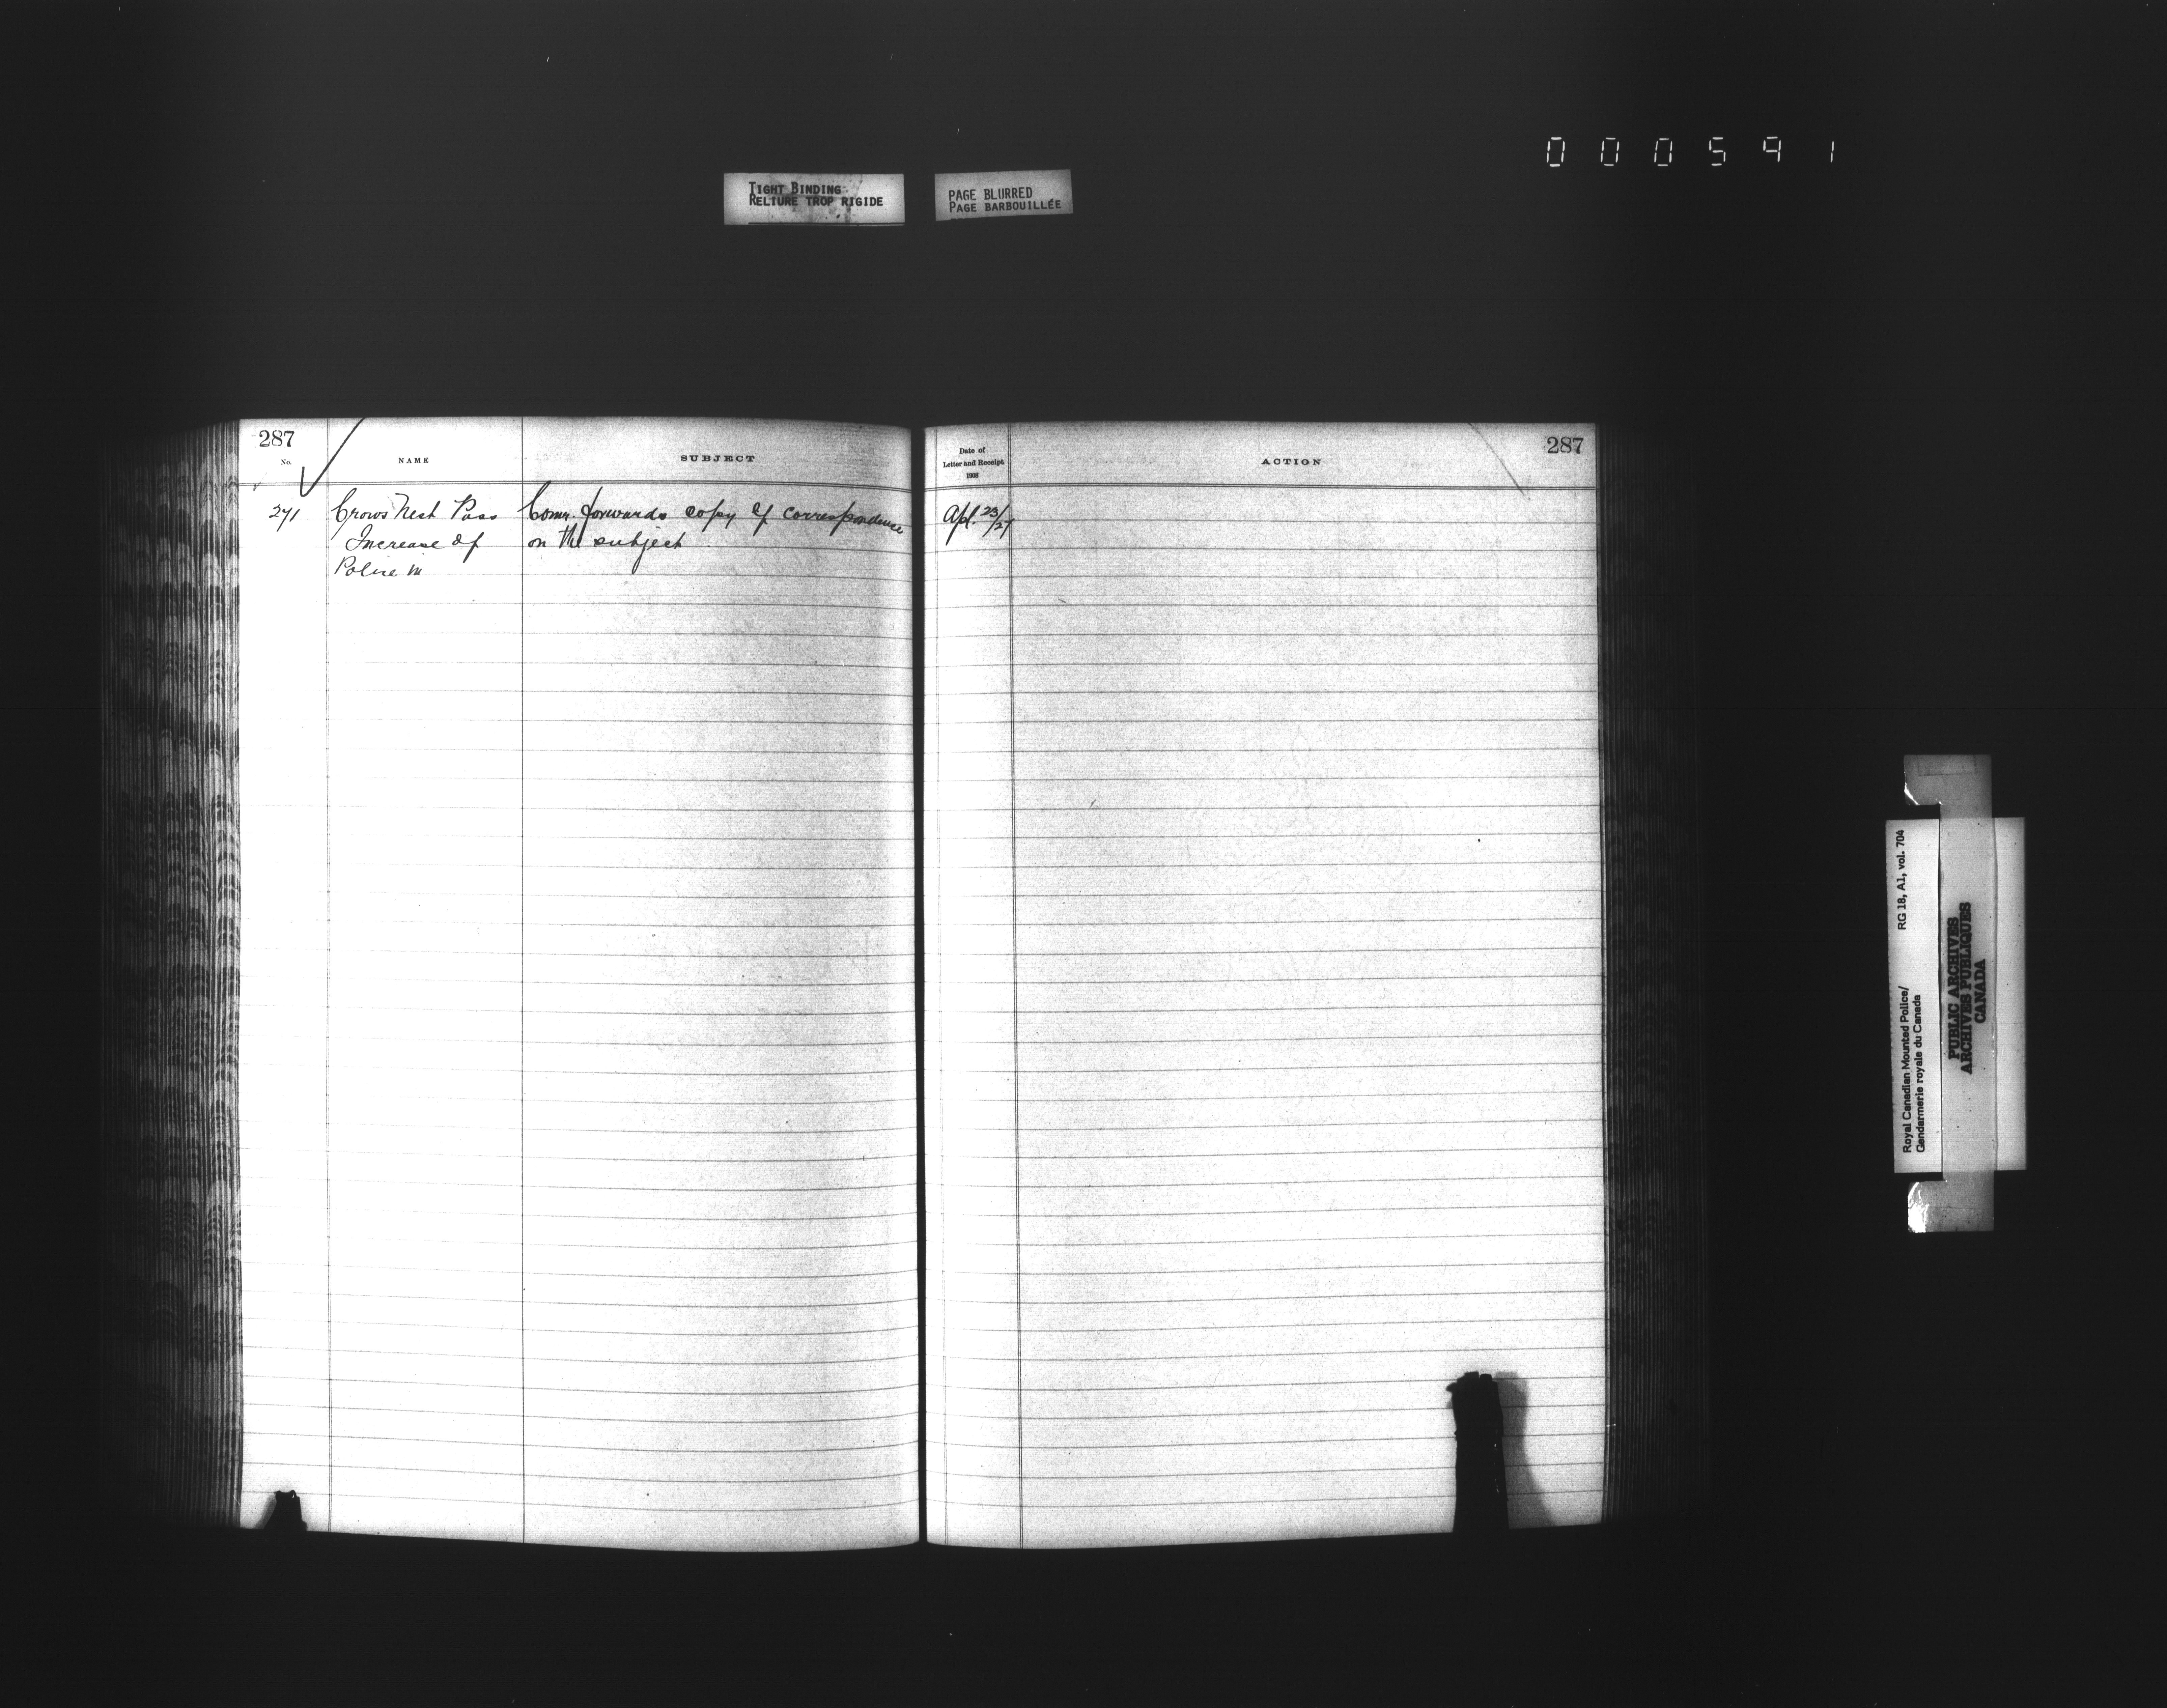 000591
TIGHT BINDING
RELIURE TROP RIGIDE
PAGE BLURRED
PAGE BARBOUILLÉE
287
No.
NAME
SUBJECT
271
Crows Nest Pass
Increase of
Police in
Comr. forwards copy of correspondence
on the subject
Date of
Letter and Receipt
1908
ACTION
287
Apl. 23/27
Royal Canadian Mounted Police/
Gendarmerie royale du Canada
RG 18, A1, vol. 704
PUBLIC ARCHIVES
ARCHIVES PUBLIQUES
CANADA